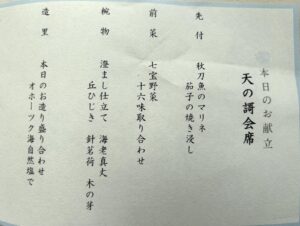 本日のお献立
天の謌会席
先付
秋刀魚のマリネ
茄子の焼き浸し
前菜
七宝野菜
十六味取り合わせ
椀物
澄まし仕立て 海老真丈
丘ひじき 針茗荷 木の芽
造里
本日のお造り盛り合わせ
オホーツク海自然塩で